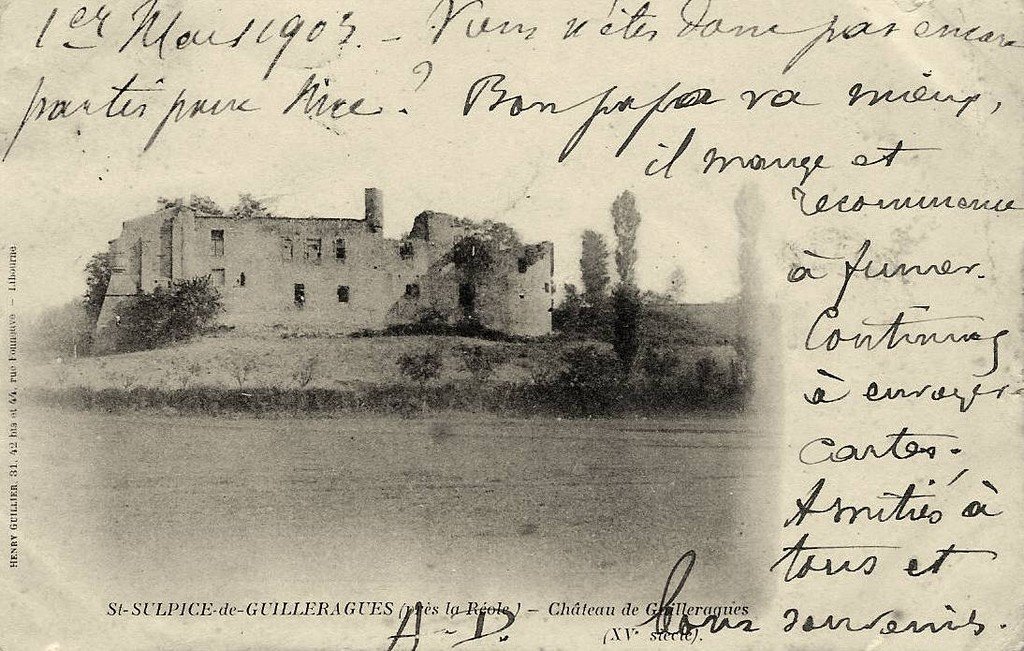 1er Mars 1903. - Vous n'êtes donc pas encore
partis pour Nice? Bon papa va mieux,
il mange et
recommence
à fumer.
Continuez
à envoyer
cartes.
Amitiés à
tous et
bons souvenirs.
A-D.
HENRY GUILLIER, 31, 42 bis et 44, rue Fonneuve – Libourne
St-SULPICE-de-GUILLERAGUES (près la Réole) – Château de Guilleragues
(XVe siècle).